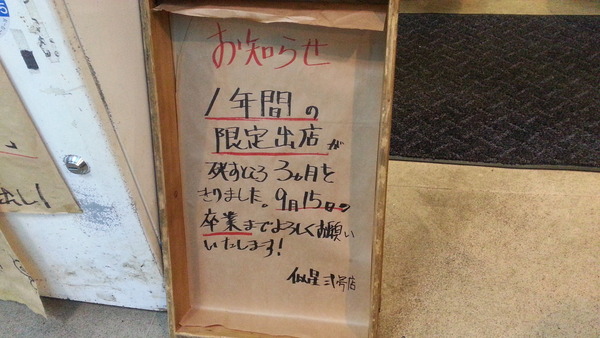 お知らせ
1年間の
限定出店が
残すところ3ヵ月と
きりました。9月15日の
卒業までよろしくお願い
いたします!
似星 弐号店
出し!